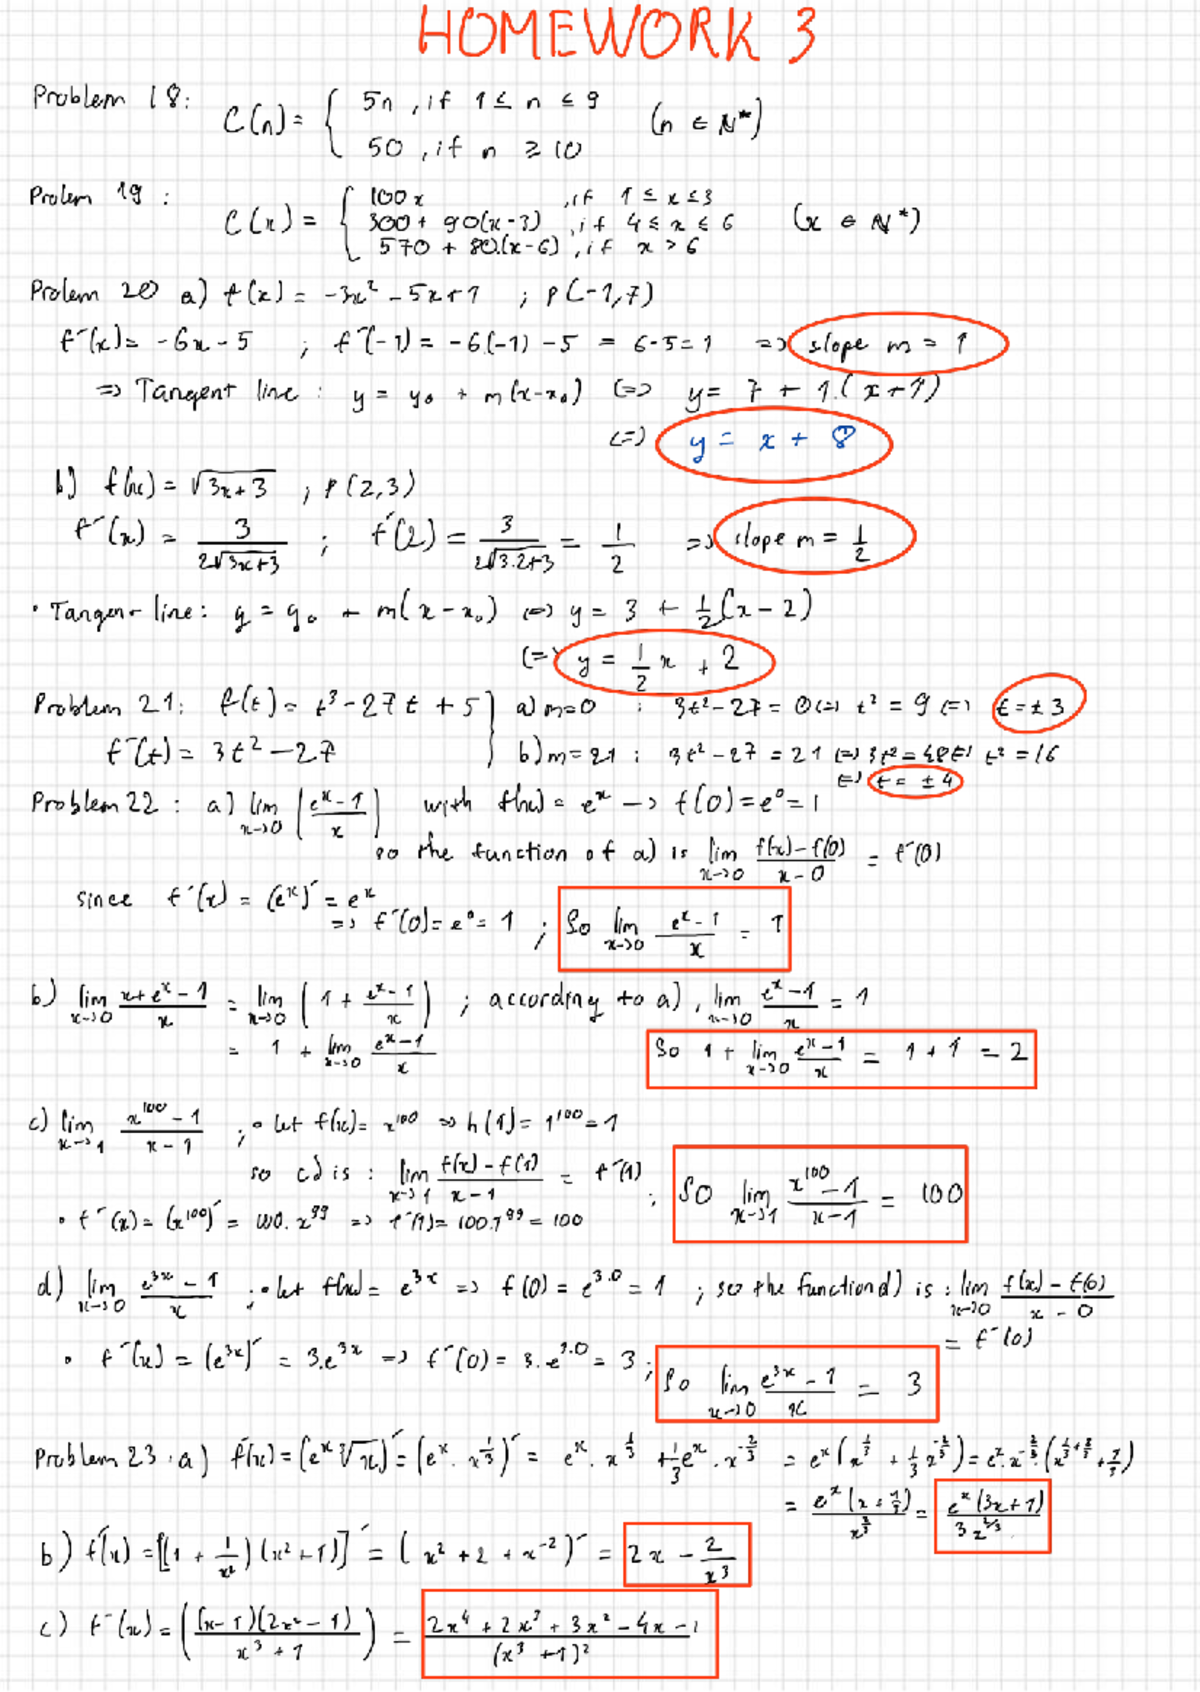 HOMEWORK 3
Problem 18: C(n) = { 5n , if 1 ≤ n ≤ 9 (n ∈ N*)
50 , if n ≥ 10
Prolem 19 : C(x) = { 100x , if 1 ≤ x ≤ 3
300 + 90(x-3) , if 4 ≤ x ≤ 6 (x ∈ N*)
570 + 80.(x-6) , if x > 6
Prolem 20 a) f(x) = -3x² - 5x + 1 ; P(-1,7)
f'(x) = -6x - 5 ; f'(-1) = -6(-1) - 5 = 6-5 = 1 => slope m = 1
=> Tangent line : y = y₀ + m(x-x₀) (=> y = 7 + 1.(x+1)
(=) y = x + 8
b) f(x) = √3x+3 ; P(2,3)
f'(x) = 3/2√3x+3 ; f'(2) = 3/2√3.2+3 = 1/2 => slope m = 1/2
• Tangent line: y = y₀ + m(x-x₀) (=> y = 3 + 1/2(x-2)
(=> y = 1/2 x + 2
Problem 21: f(t) = t³ - 27t + 5 } a) m=0 : 3t² - 27 = 0 (=) t² = 9 (=) t = ± 3
f'(t) = 3t² - 27 } b) m=21 : 3t² - 27 = 21 (=) 3t² = 48 (=) t² = 16
(=) t = ± 4
Problem 22 : a) lim x->0 (eˣ-1/x) with f(x) = eˣ -> f(0) = e⁰ = 1
so the function of a) is lim x->0 f(x)-f(0)/x-0 = f'(0)
since f'(x) = (eˣ)' = eˣ
=> f'(0) = e⁰ = 1 ; So lim x->0 eˣ-1/x = 1
b) lim x->0 x+eˣ-1/x = lim x->0 (1 + eˣ-1/x) ; according to a) , lim x->0 eˣ-1/x = 1
= 1 + lim x->0 eˣ-1/x So 1 + lim x->0 eˣ-1/x = 1 + 1 = 2
c) lim x->1 x¹⁰⁰-1/x-1 ; • let f(x) = x¹⁰⁰ => h(1) = 1¹⁰⁰ = 1
so c) is : lim x->1 f(x)-f(1)/x-1 = f'(1) ; SO lim x->1 x¹⁰⁰-1/x-1 = 100
• f'(x) = (x¹⁰⁰)' = 100.x⁹⁹ => f'(1) = 100.1⁹⁹ = 100
d) lim x->0 e³ˣ-1/x ; • let f(x) = e³ˣ => f(0) = e³·⁰ = 1 ; so the function d) is : lim x->0 f(x)-f(0)/x-0
= f'(0)
• f'(x) = (e³ˣ)' = 3.e³ˣ => f'(0) = 3.e³·⁰ = 3 ; So lim x->0 e³ˣ-1/x = 3
Problem 23 : a) f'(x) = (eˣ ³√x)' = (eˣ . x^1/3)' = eˣ . x^1/3 + 1/3 eˣ . x^-2/3 = eˣ(x^1/3 + 1/3 x^-2/3) = eˣ . x^-2/3 . (x^1/3+2/3 + 1/3)
= eˣ(x + 1/3)/x^2/3 = eˣ(3x+1)/3x^2/3
b) f'(x) = [(1 + 1/x²)(x²+1)]' = (x² + 2 + x⁻²)' = 2x - 2/x³
c) f'(x) = ((x-1)(2x²-1)/x³+1)' = 2x⁴ + 2x³ + 3x² - 4x - 1/(x³+1)²